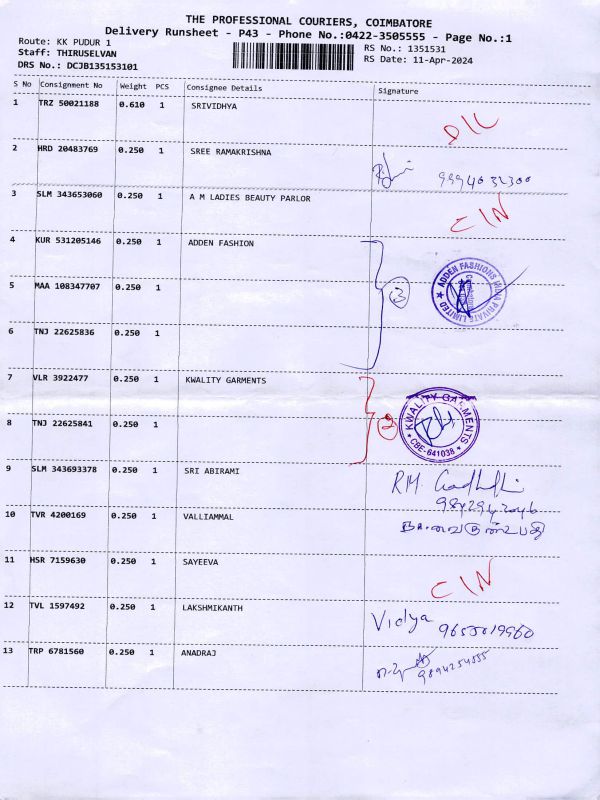 THE PROFESSIONAL COURIERS, COIMBATORE
Delivery Runsheet - P43 - Phone No.:0422-3505555 - Page No.:1
Route: KK PUDUR 1
RS No.: 1351531
Staff: THIRUSELVAN
RS Date: 11-Apr-2024
DRS No.: DCJB135153101
S No Consignment No Weight PCS Consignee Details Signature
1 TRZ 50021188 0.610 1 SRIVIDHYA
D/L
2 HRD 20483769 0.250 1 SREE RAMAKRISHNA
9994032300
3 SLM 343653060 0.250 1 A M LADIES BEAUTY PARLOR
C/N
4 KUR 531205146 0.250 1 ADDEN FASHION
5 MAA 108347707 0.250 1
3
ADDEN FASHIONS INDIA PRIVATE LIMITED
6 TNJ 22625836 0.250 1
7 VLR 3922477 0.250 1 KWALITY GARMENTS
8 TNJ 22625841 0.250 1
2
KWALITY GARMENTS
CBE-641038
9 SLM 343693378 0.250 1 SRI ABIRAMI
R.M.
10 TVR 4200169 0.250 1 VALLIAMMAL
11 HSR 7159630 0.250 1 SAYEEVA
C/N
12 TVL 1597492 0.250 1 LAKSHMIKANTH
Vidya 9655019960
13 TRP 6781560 0.250 1 ANADRAJ
9894254555